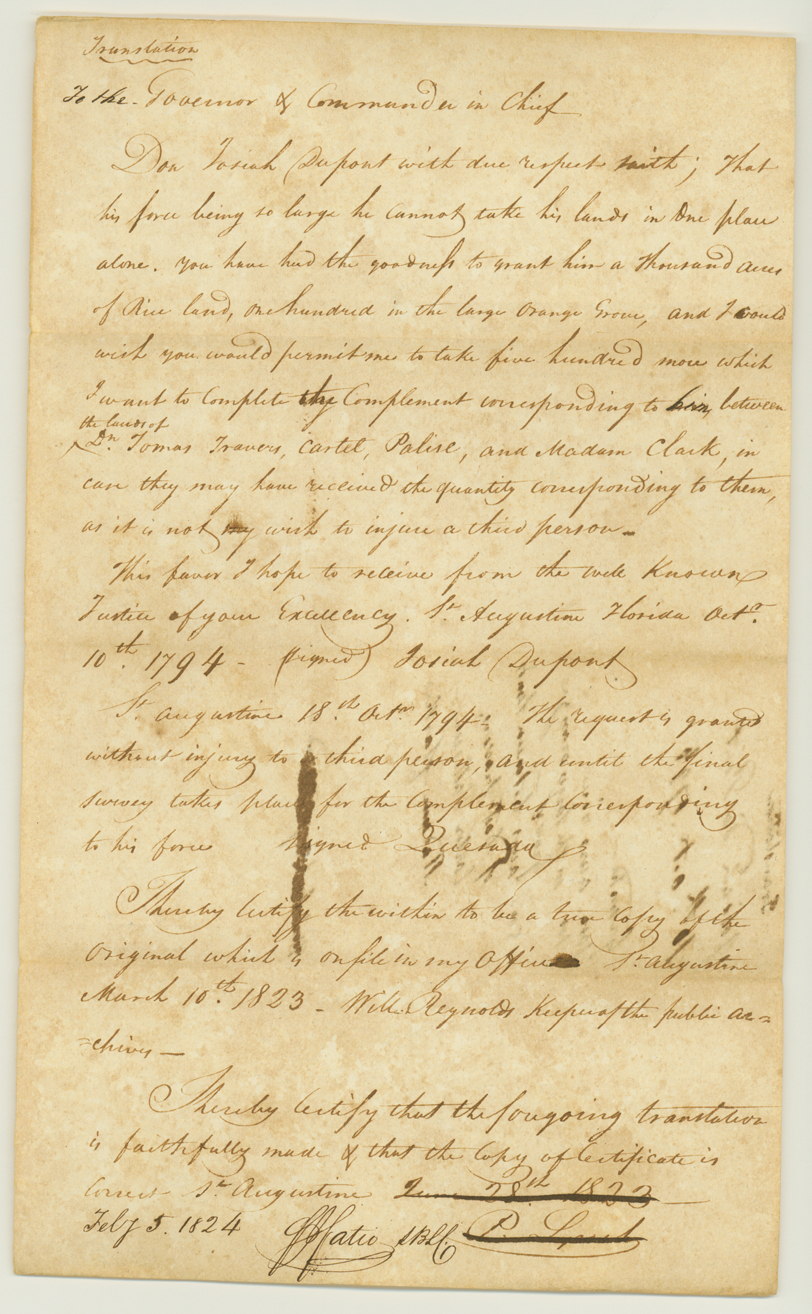 Translation
To the Governor & Commander in Chief
Don Josiah Dupont with due respect saith; That
his force being so large he cannot take his lands in One place
alone. you have had the goodness to grant him a thousand acres
of Rice land, one hundred in the large Orange Grove, and I would
wish you would permit me to take five hundred more which
I want to Complete the Complement corresponding to him, between
the lands of
Dn. Tomas Travers, Cartel, Palise, and Madam Clark, in
case they may have received the quantity corresponding to them,
as it is not my wish to injure a third person –
This favor I hope to receive from the well Known
Justice of your Excellency. St. Augustine Florida Octr.
10th. 1794 – (signed) Josiah Dupont
St. Augustine 18th. Octr. 1794. The request is granted
without injury to a third person, and until the final
survey takes place for the Complement Corresponding
to his force signed Quesada
I hereby Certify the within to be a true Copy of the
Original which is on file in my Office St. Augustine
March 10th. 1823 – Will. Reynolds Keeper of the public ar=
=chives —
I hereby Certify that the foregoing translation
is faithfully made & that the Copy of Certificate is
Correct St. Augustine June 28th 1823
Feby 5. 1824 FJFatio SBLC P. Lynch